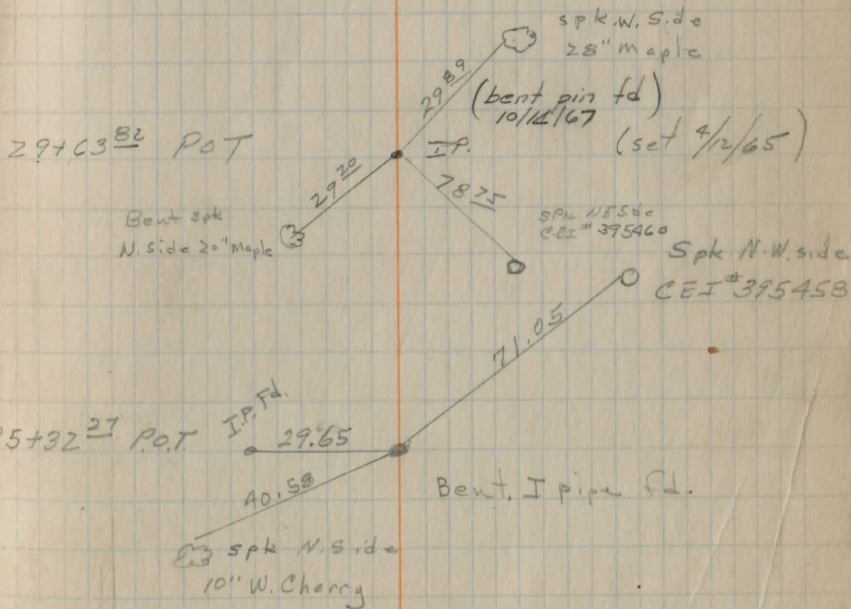 spk. W. Side
28" Maple
29 89
(bent pin fd)
10/12/67
(set 4/12/65)
29+63 82 POT
I.P.
29 20
78 75
Bent spk
N. Side 20" Maple
SPK NE Side
CEI # 395460
Spk N.W. side
CEI #395458
71.05
I.P. Fd.
5+32 27 P.O.T.
29.65
40.58
Bent. I pipe fd.
spk N. Side
10" W. Cherry